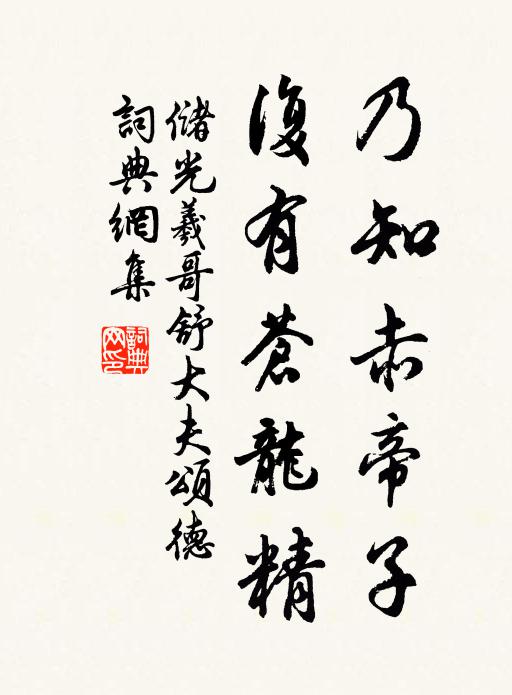 乃知赤帝子
復有蒼龍精
儲光羲哥舒大夫頌德
詞典網集
詞典網印